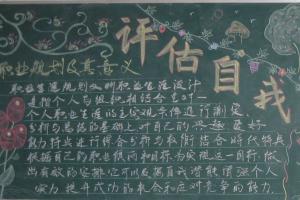 评估自我
职业规划及其意义
职业生涯规划又叫职业生涯设计
是指个人与组织相结合,在对一
个人职业生涯的主客观条件进行测定
分析与总结的基础上,对自己的兴趣,爱好
能力特点进行综合分析与权衡,结合时代特点
根据自己的职业倾向
和目标,为实现这一目标,做
出有效的安排,它可以发掘自我潜能,增强个人
实力,提升成功的机会和应对竞争的能力.